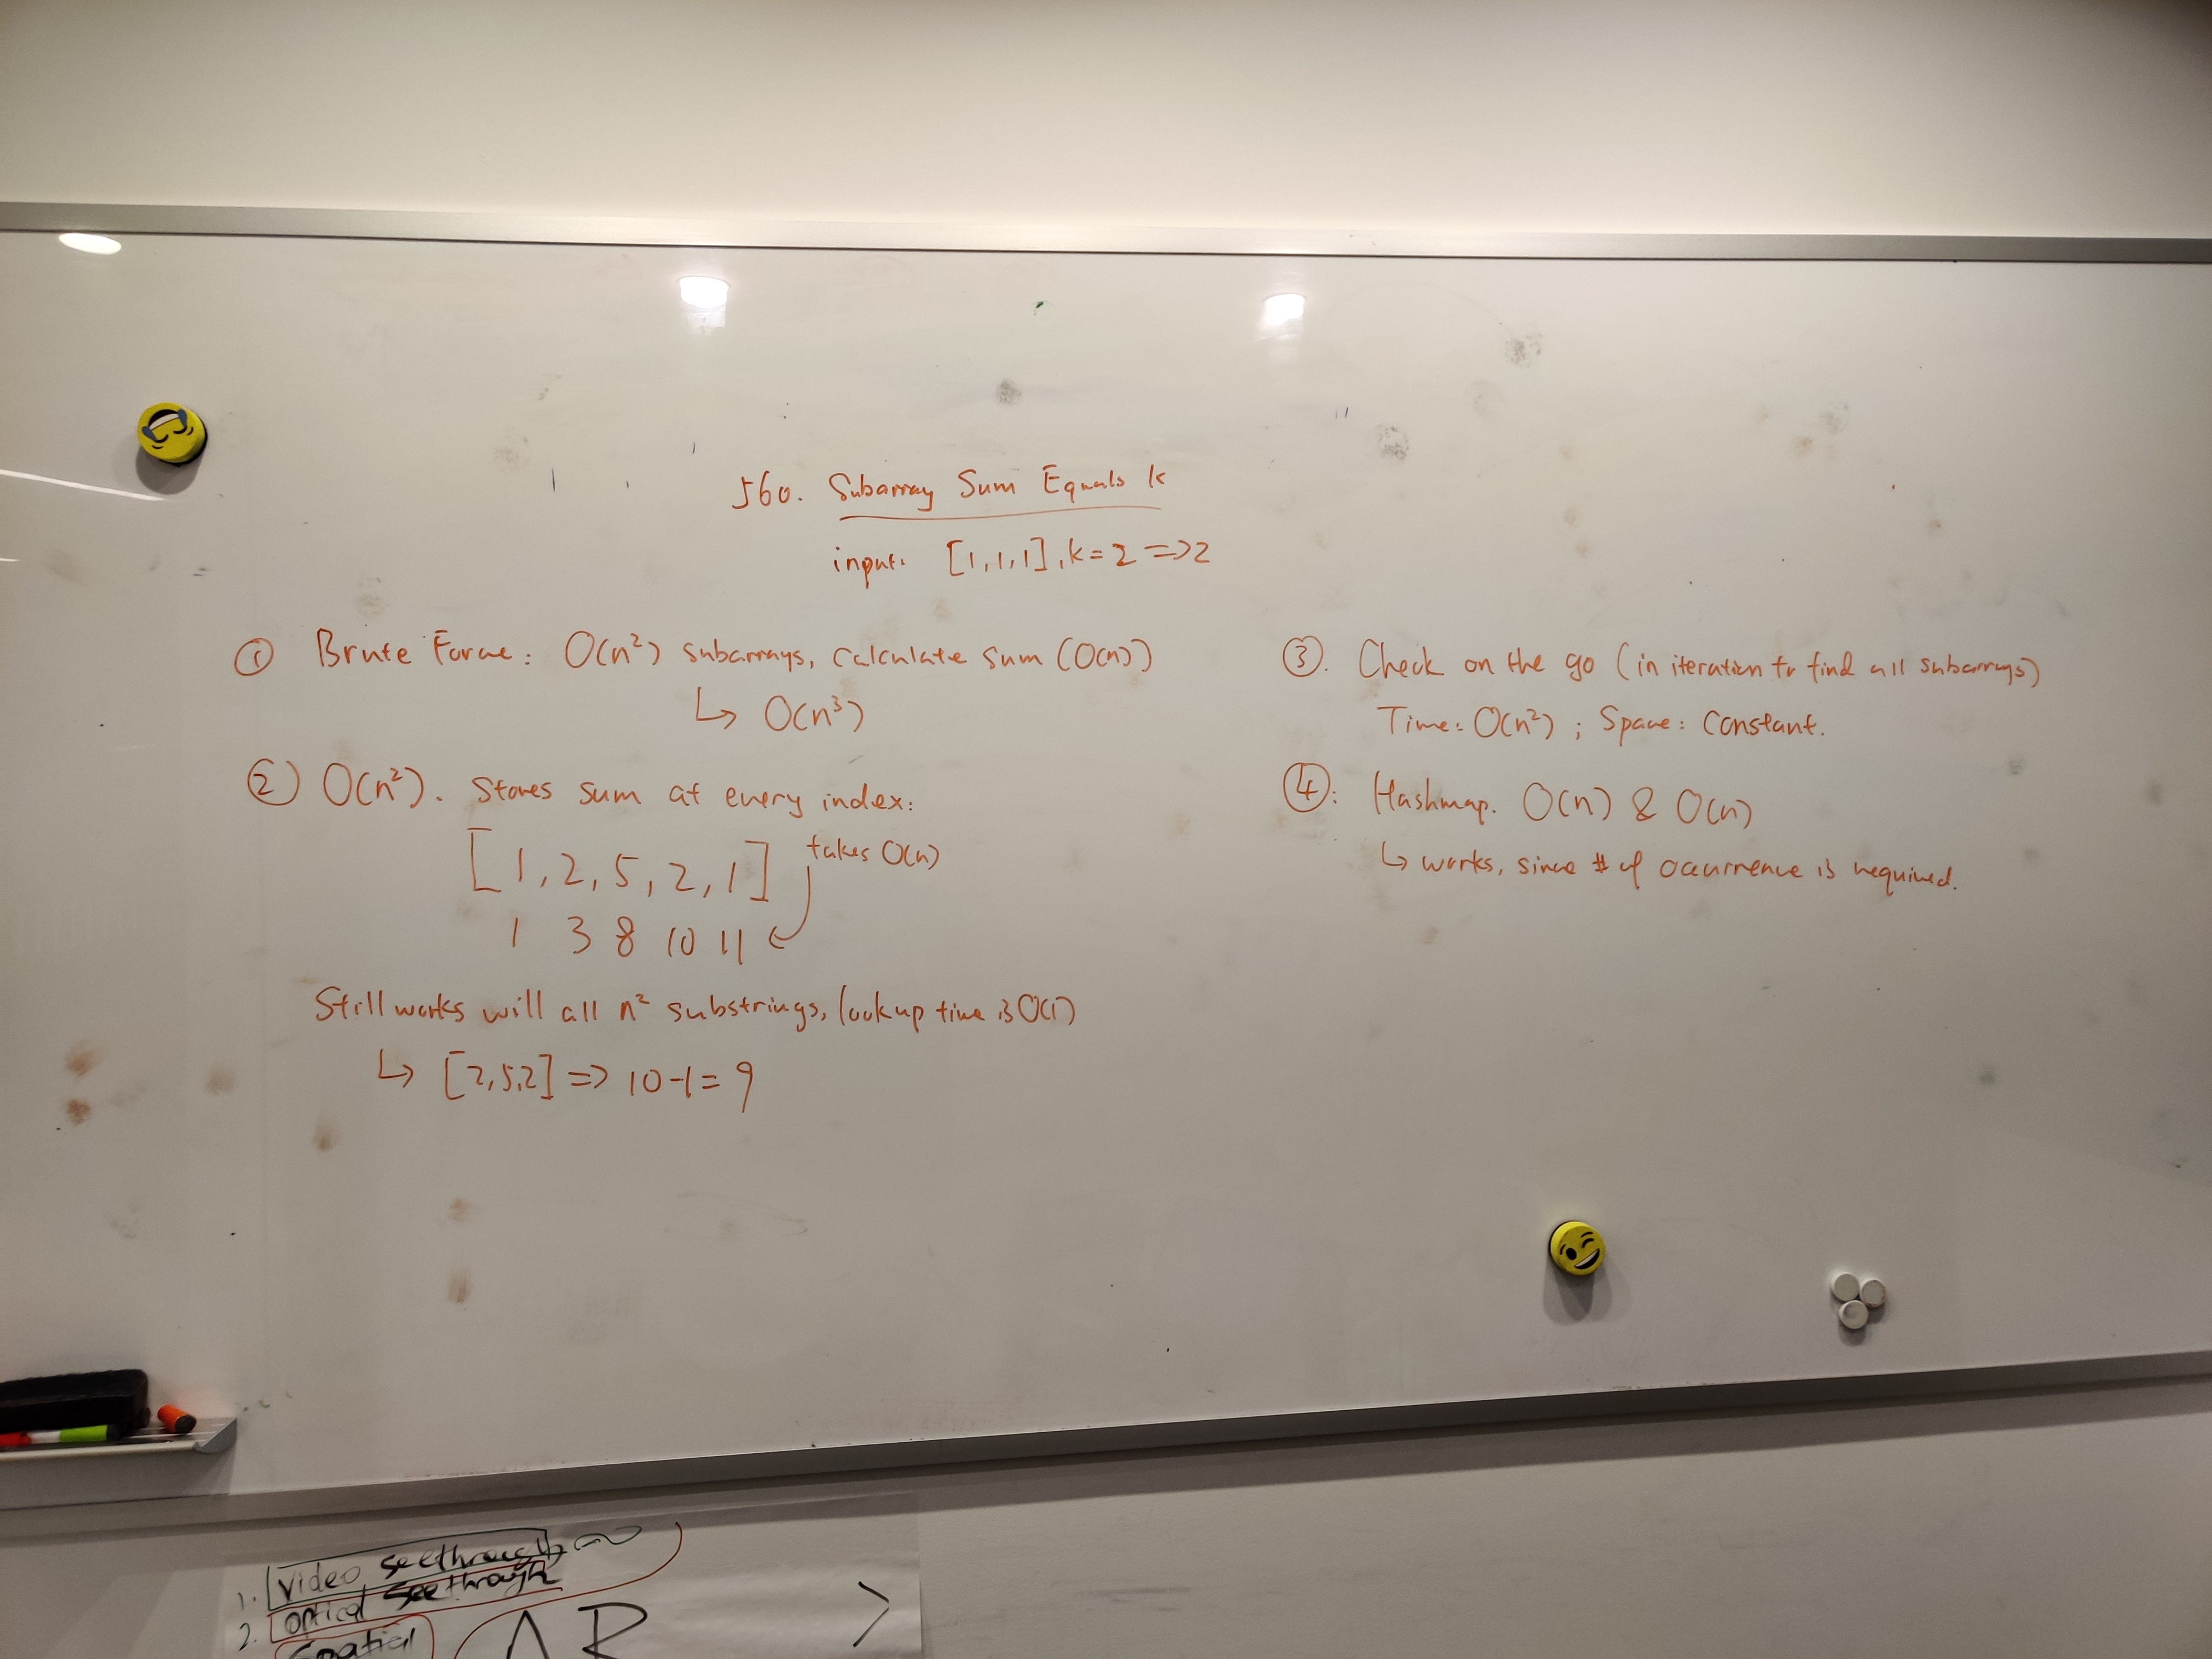 560. Subarray Sum Equals k
input: [1,1,1], k=2 => 2
① Brute Force: O(n²) subarrays, calculate sum (O(n))
↳ O(n³)
② O(n²). Stores sum at every index:
[1, 2, 5, 2, 1] takes O(n)
1 3 8 10 11
Still works will all n² substrings, lookup time is O(1)
↳ [2,5,2] => 10-1=9
③. Check on the go (in iteration to find all subarrays)
Time: O(n²) ; Space: Constant.
④: Hashmap. O(n) & O(n)
↳ works, since # of occurrence is required.
1. Video seethrough
2. optical seethrough
Spatial
AR
>